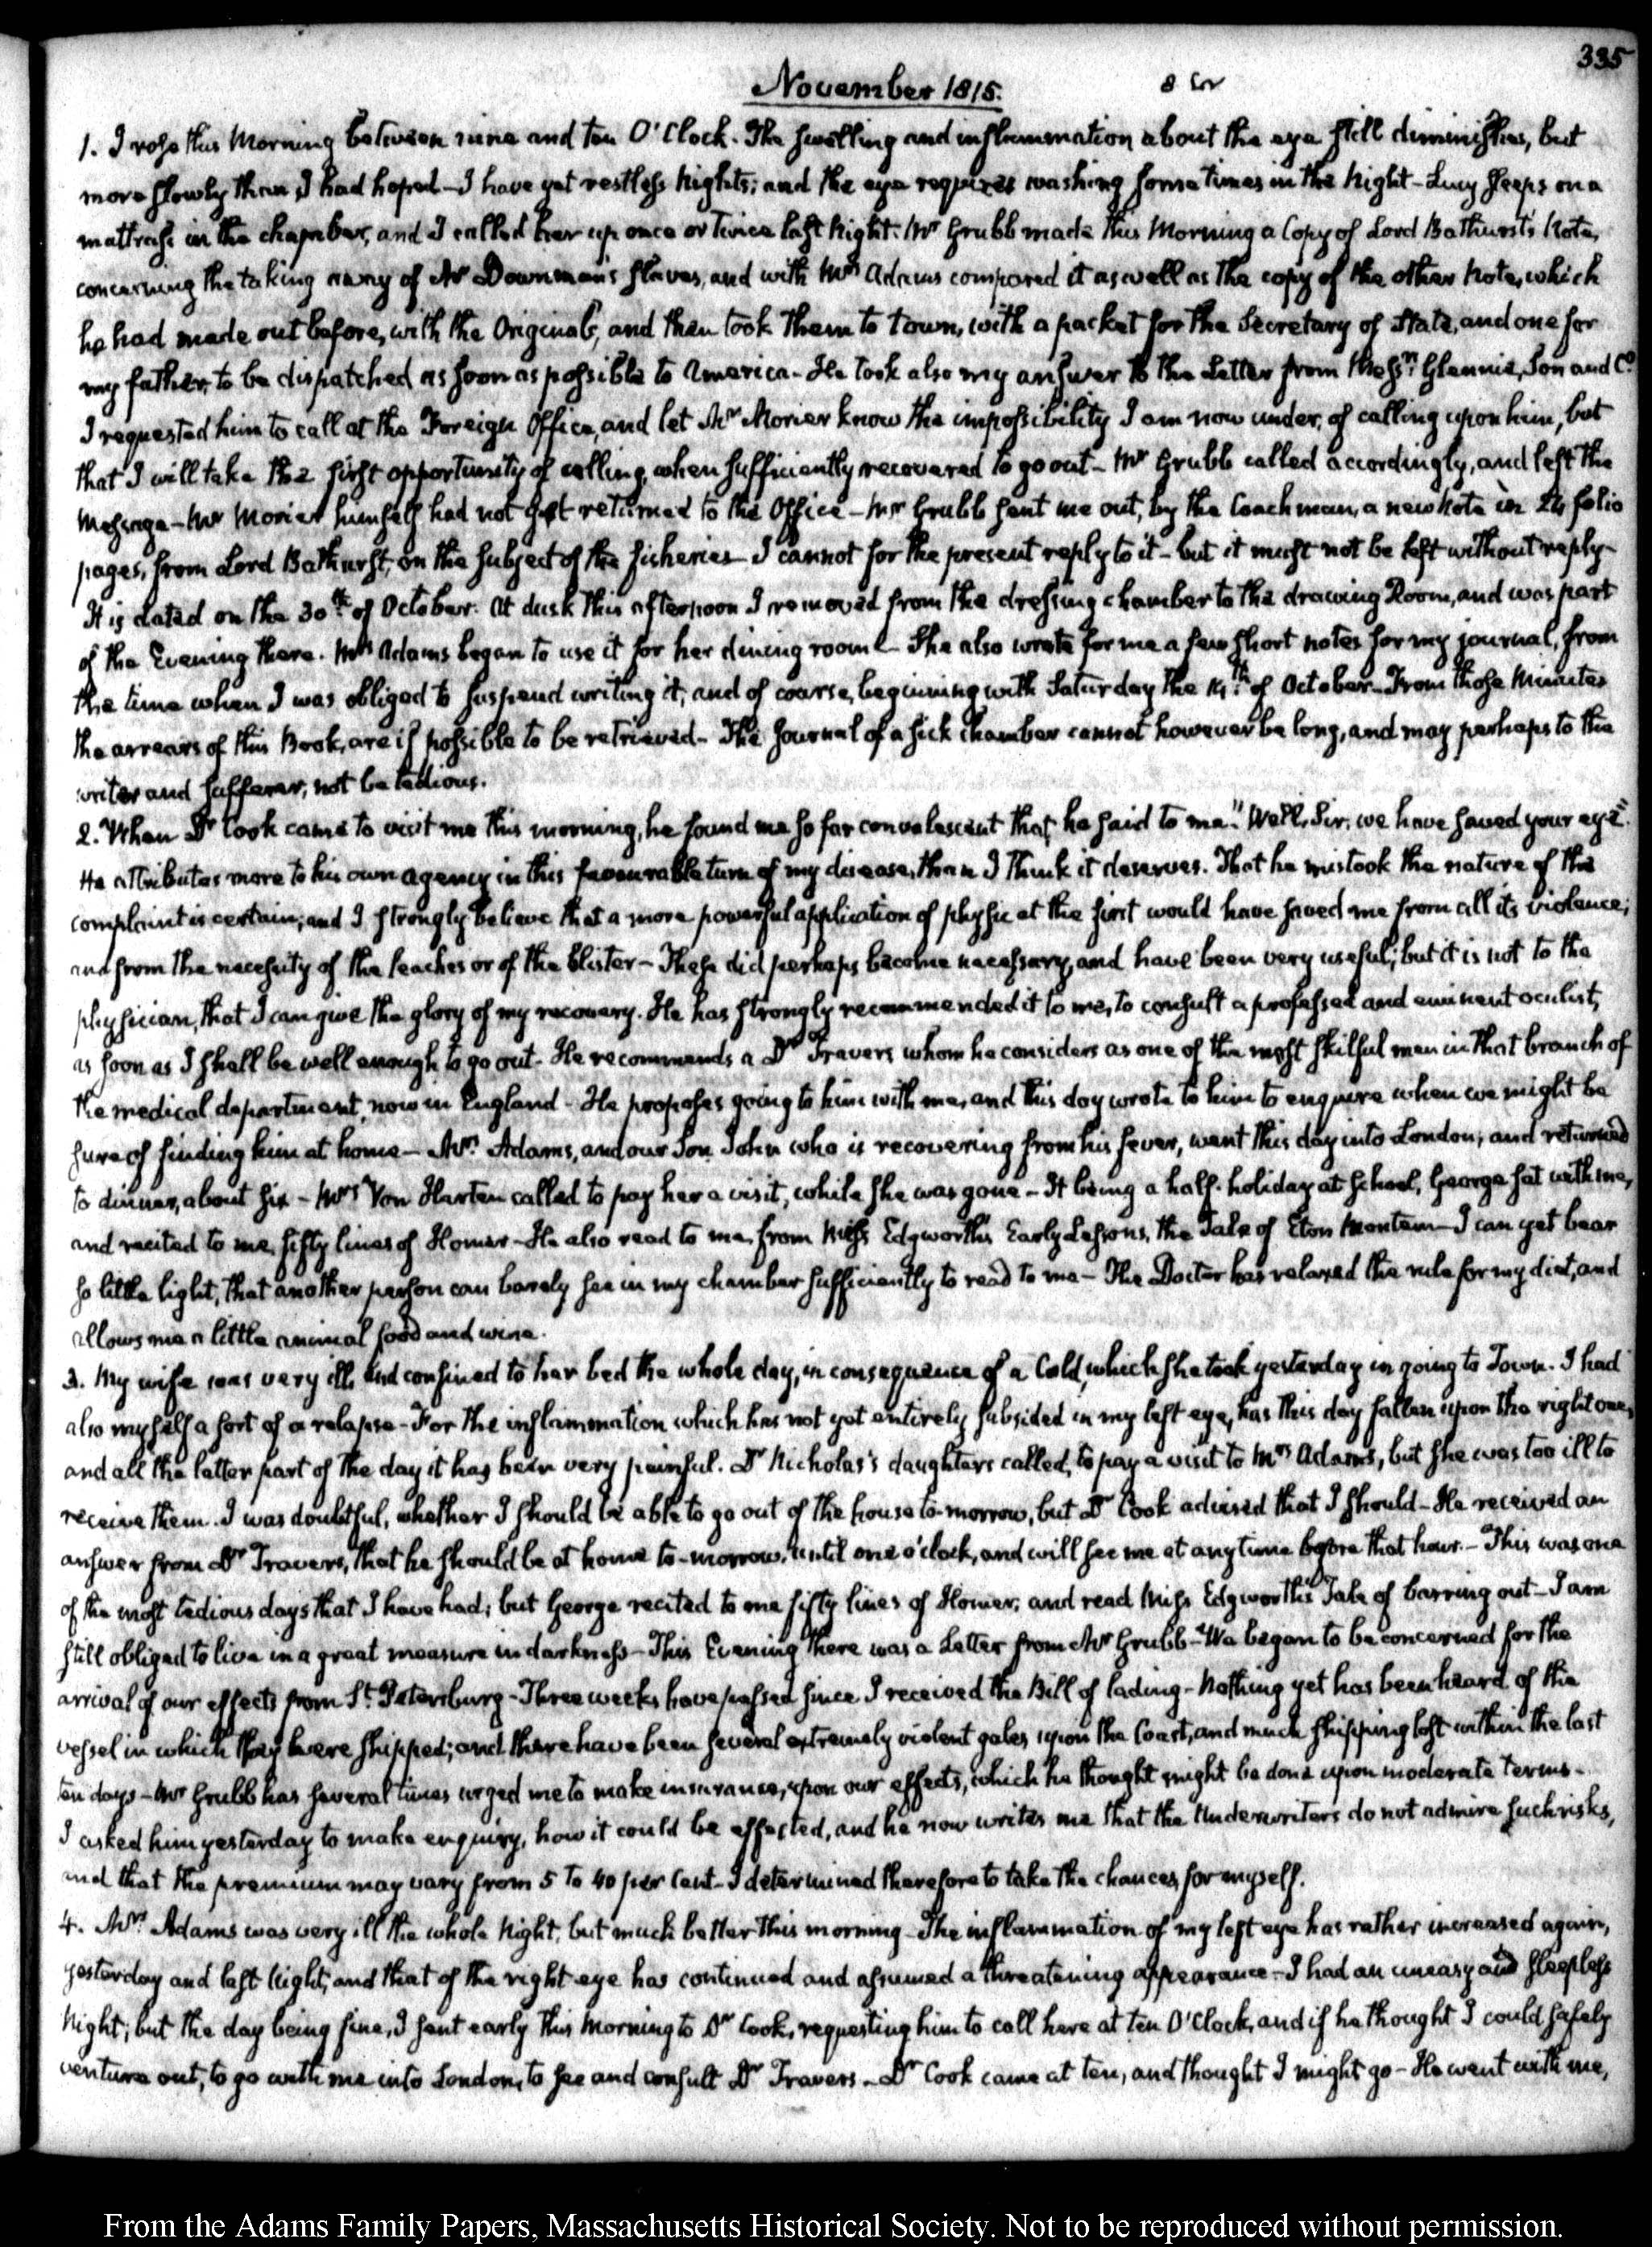 335
November 1815.
1. I rose this Morning between nine and ten O'Clock. The swelling and inflammation about the eye still diminishes, but
more slowly than I had hoped—I have yet restless Nights; and the eye requires washing sometimes in the Night—Lucy sleeps on a
mattrass in the chamber, and I called her up once or twice last Night. Mr Grubb made this Morning a Copy of Lord Bathurst's Note,
concerning the taking away of Mr Downman's slaves, and with Mrs Adams compared it as well as the copy of the other Note, which
he had made out before, with the Originals, and then took them to town, with a packet for the Secretary of State, and one for
my father, to be dispatched as soon as possible to America—He took also my answer to the Letter from Messrs Glennie, Son and Co.
I requested him to call at the Foreign Office, and let Mr Morier know the impossibility I am now under, of calling upon him, but
that I will take the first opportunity of calling, when sufficiently recovered to go out—Mr Grubb called accordingly, and left the
Message—Mr Morier himself had not yet returned to the Office—Mr Grubb sent me out, by the Coachman, a new Note in 24 folio
pages, from Lord Bathurst, on the subject of the fisheries—I cannot for the present reply to it—but it must not be left without reply—
It is dated on the 30th of October. At dusk this afternoon I removed from the dressing chamber to the drawing Room, and was part
of the Evening there. Mrs Adams began to use it for her dining room—She also wrote for me a few short notes for my journal, from
the time when I was obliged to suspend writing it, and of course, beginning with Saturday the 14th of October—From those Minutes
the arrears of this Book, are if possible to be retrieved—The Journal of a sick chamber cannot however be long, and may perhaps to the
writer and sufferer, not be tedious.
2. When Dr Cook came to visit me this morning, he found me so far convalescent that he said to me "Well, Sir, we have saved your eye".
He attributes more to his own agency in this favourable turn of my disease, than I think it deserves. That he mistook the nature of the
complaint is certain; and I strongly believe that a more powerful application of physic at the first would have saved me from all its violence;
and from the necessity of the leaches or of the blister—These did perhaps become necessary, and have been very useful; but it is not to the
physician, that I can give the glory of my recovery. He has strongly recommended it to me, to consult a professed and eminent oculist,
as soon as I shall be well enough to go out. He recommends a Dr Travers whom he considers as one of the most skilful men in that branch of
the medical department, now in England—He proposes going to him with me, and this day wrote to him to enquire when we might be
sure of finding him at home—Mrs Adams, and our Son John who is recovering from his fever, went this day into London; and returned
to dinner, about six—Mrs Von Harten called to pay her a visit, while she was gone—It being a half-holiday at School, George sat with me,
and recited to me, fifty lines of Homer—He also read to me, from Miss Edgworth's Early Lessons, the Tale of Eton Montem—I can yet bear
so little light, that another person can barely see in my chamber sufficiently to read to me—The Doctor has relaxed the rule for my diet, and
allows me a little animal food and wine.
3. My wife was very ill, and confined to her bed the whole day, in consequence of a Cold, which she took yesterday in going to Town. I had
also myself a sort of a relapse—For the inflammation which has not yet entirely subsided in my left eye, has this day fallen upon the right one,
and all the latter part of the day it has been very painful. Dr Nicholas's daughters called, to pay a visit to Mrs Adams, but she was too ill to
receive them. I was doubtful, whether I should be able to go out of the house to-morrow, but Dr Cook advised that I should—He received an
answer from Dr Travers, that he should be at home to-morrow, until one o'clock, and will see me at any time before that hour.—This was one
of the most tedious days that I have had; but George recited to me fifty lines of Homer; and read Miss Edgworth's Tale of barring out—I am
still obliged to live in a great measure in darkness—This Evening there was a Letter from Mr Grubb—We began to be concerned for the
arrival of our effects from St. Petersburg—Three weeks have passed since I received the Bill of lading—Nothing yet has been heard of the
vessel in which they were shipped; and there have been several extremely violent gales upon the Coast, and much shipping lost within the last
ten days—Mr Grubb has several times urged me to make insurance, upon our effects, which he thought might be done upon moderate terms—
I asked him yesterday to make enquiry, how it could be effected, and he now writes me that the Underwriters do not admire such risks,
and that the premium may vary from 5 to 40 per Cent—I determined therefore to take the chances for myself.
4. Mrs Adams was very ill the whole Night, but much better this morning—The inflammation of my left eye has rather increased again,
yesterday and last Night, and that of the right eye has continued and assumed a threatening appearance—I had an uneasy and sleepless
Night; but the day being fine, I sent early this Morning to Dr Cook, requesting him to call here at ten O'Clock, and if he thought I could safely
venture out, to go with me into London, to see and consult Dr Travers—Dr Cook came at ten, and thought I might go—He went with me,
From the Adams Family Papers, Massachusetts Historical Society. Not to be reproduced without permission.